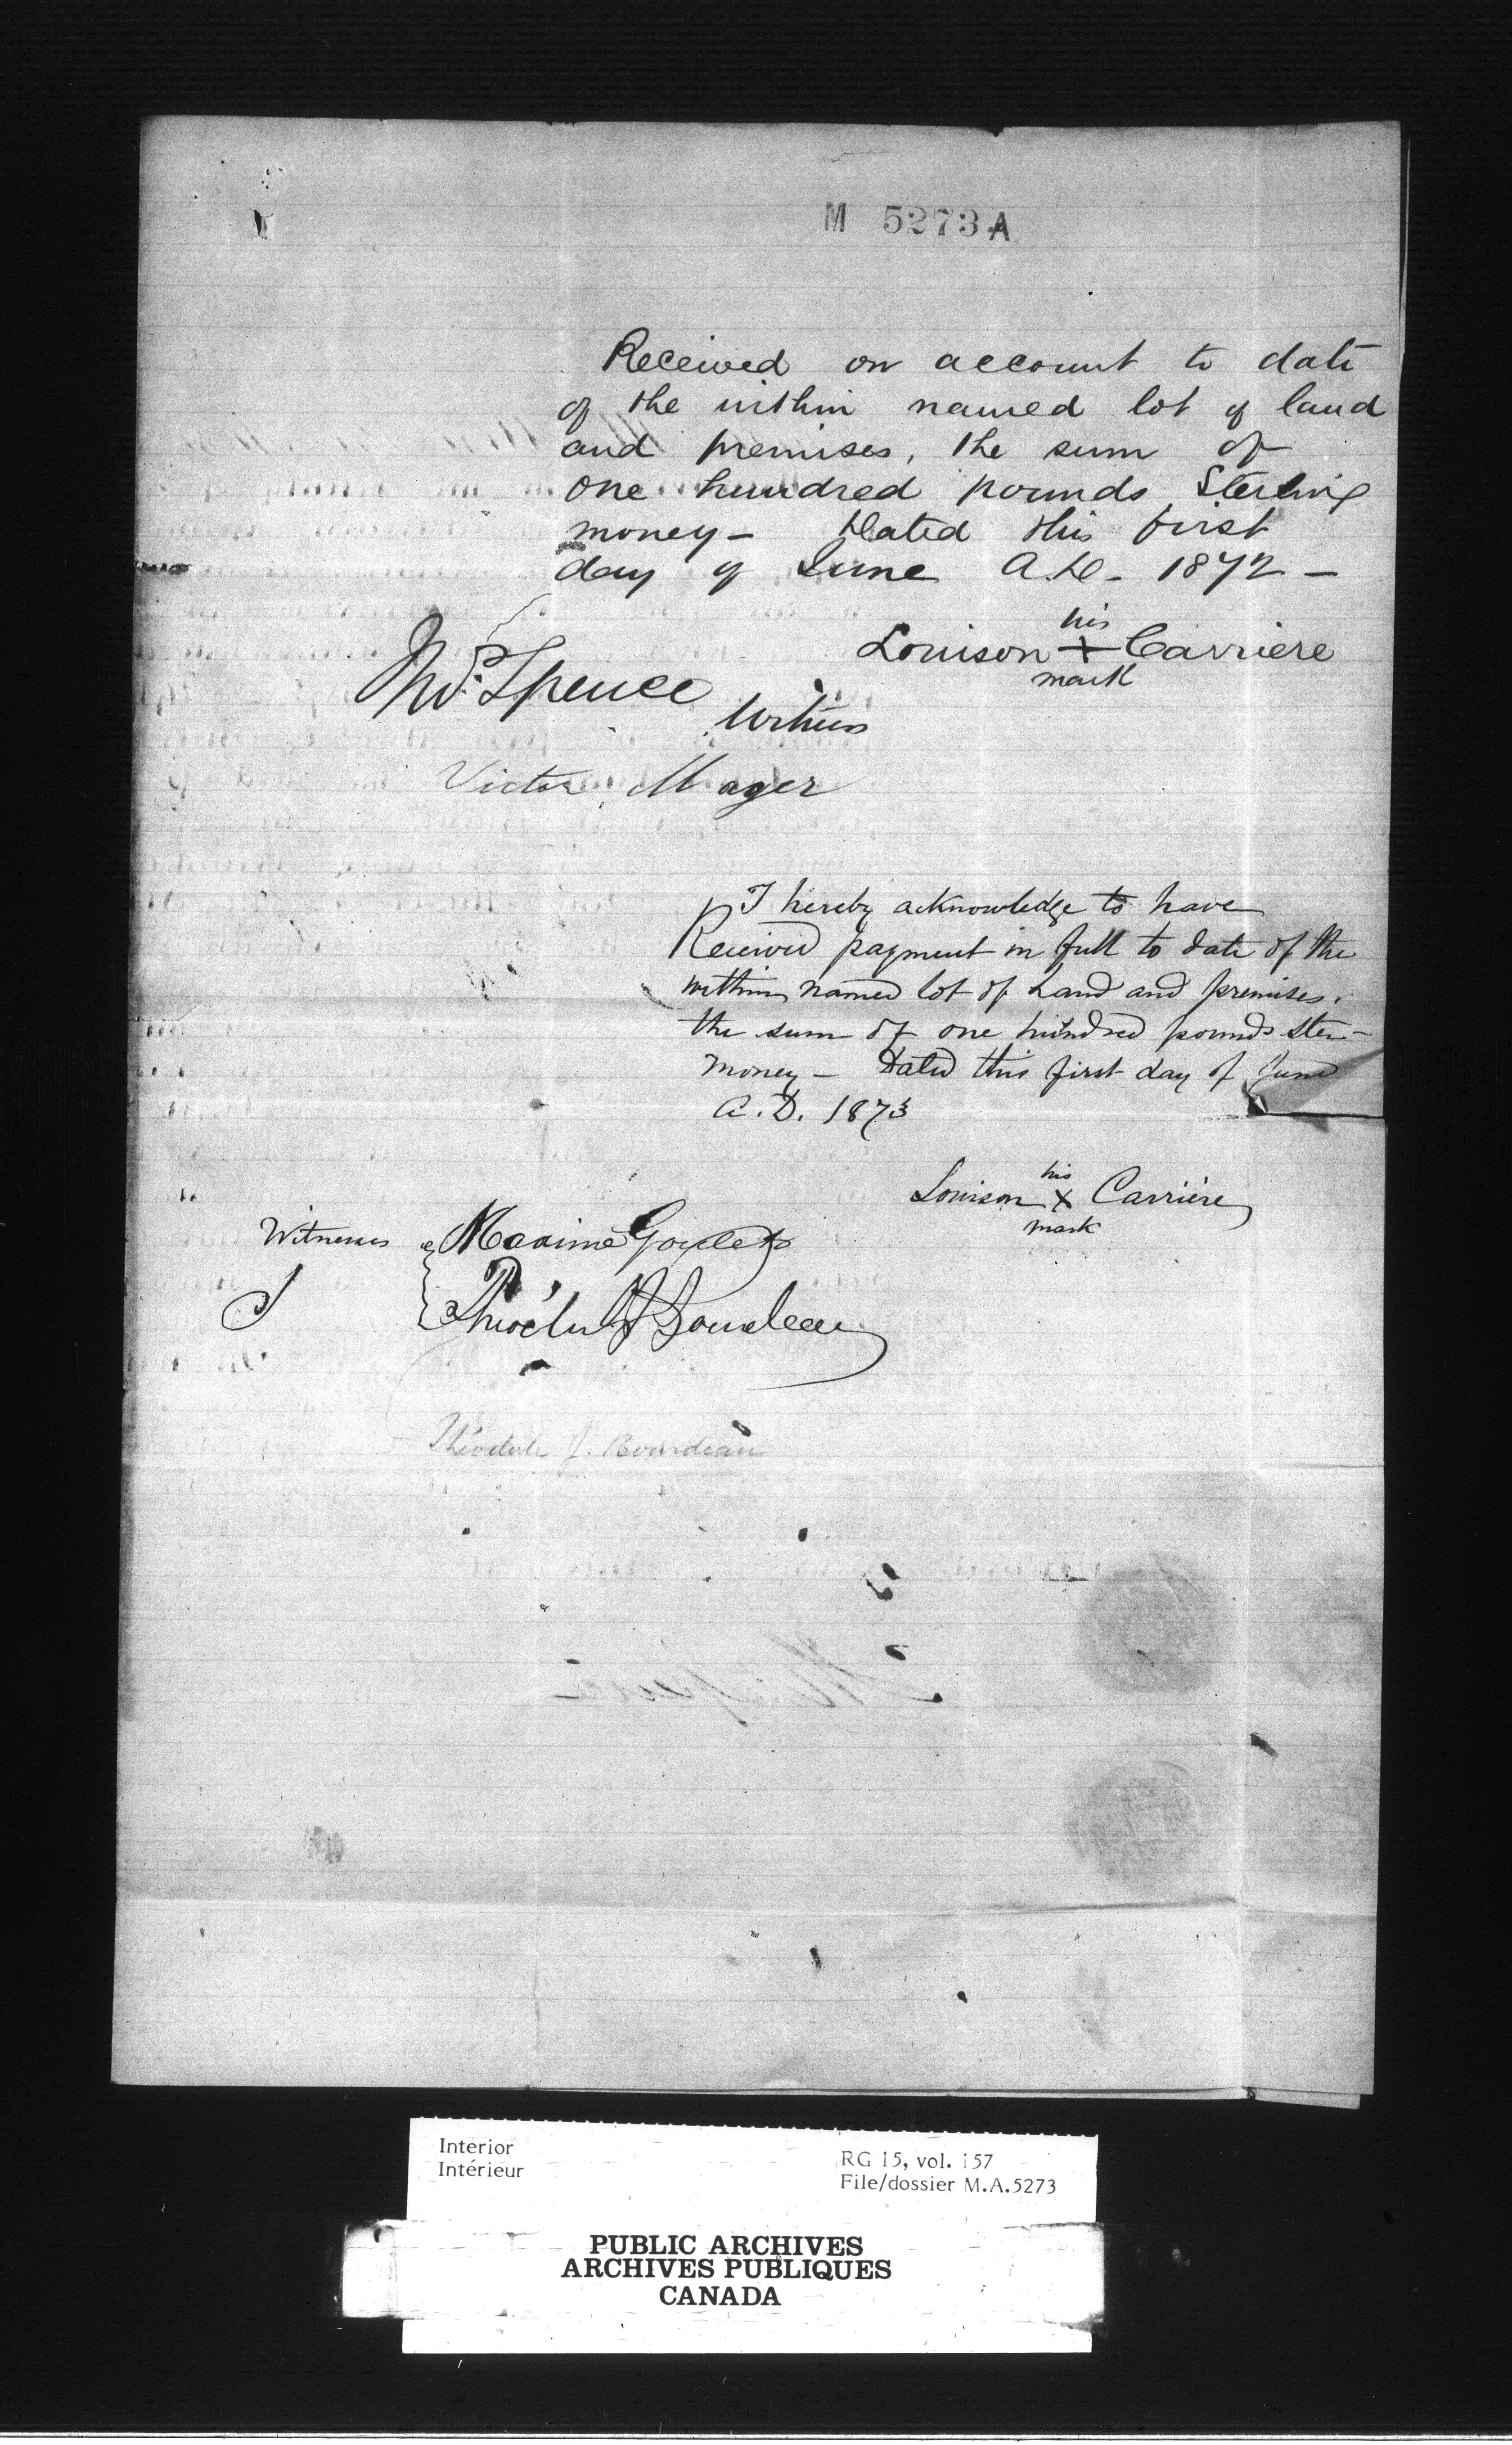 M 5273 A
Received on account to date
of the within named lot of land
and premises, the sum of
one hundred pounds Sterling
money - Dated this first
day of June A.D. 1872 -
his
Louison X Carriere
mark
Spence
Witness
Victor Mager
I hereby acknowledge to have
Received payment in full to date of the
within named lot of Land and premises.
the sum of one hundred pounds ster-
money - Dated this first day of June
A.D. 1873
his
Louison X Carrière
mark
Witnesses Maxime Goulet
Théodule J Bourdeau
Théodule J. Bourdeau
Interior
Intérieur
RG 15, vol. 157
File/dossier M.A.5273
PUBLIC ARCHIVES
ARCHIVES PUBLIQUES
CANADA